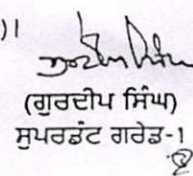 )।
(ਗੁਰਦੀਪ ਸਿੰਘ)
ਸੁਪਰਡੰਟ ਗਰੇਡ-1